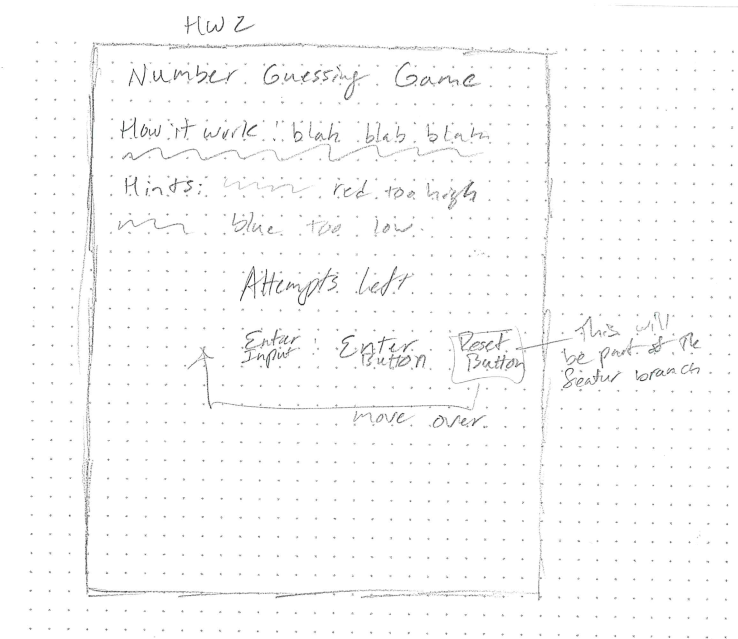 HW 2
Number Guessing Game
How it work: blah blab blah
Hints: red too high
blue too low.
Attempts Left
Enter Input
Enter Button
Reset Button
This will
be part of the
featur branch
move over.